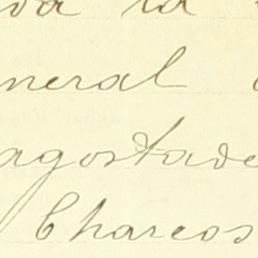 va la
neral
agostade
Charcos